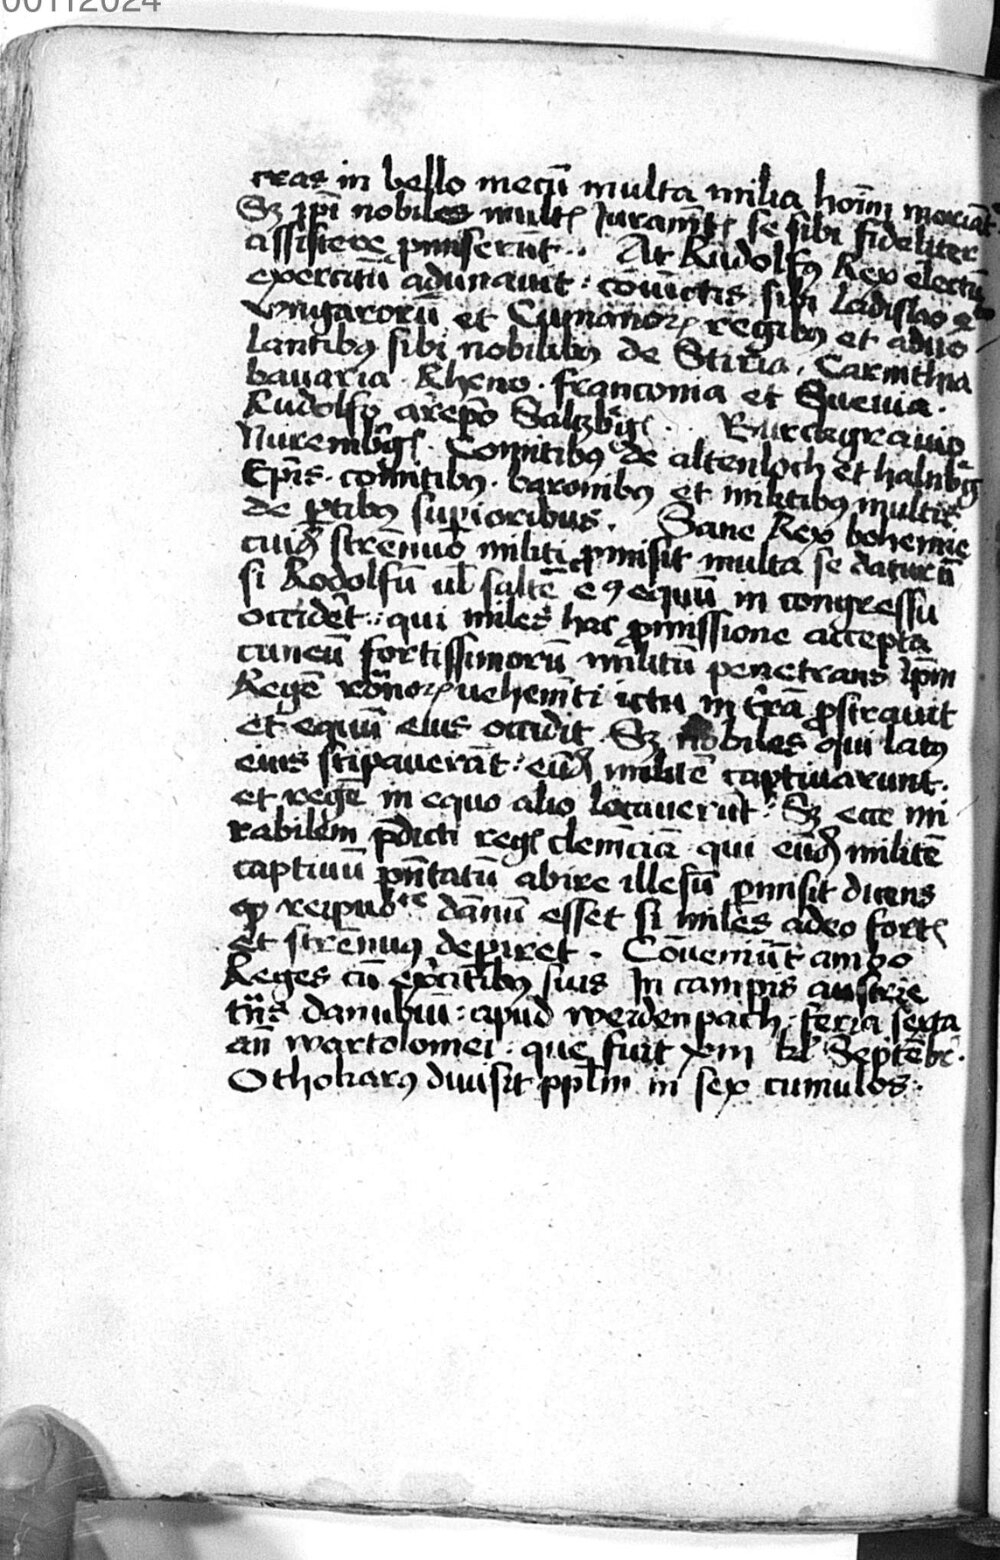 00112024
cras in bello mecū multa milia hoīm moriāt
Sꝫ ip̄i nobiles mult᷒ Juramēt᷒ se sibi fideliter
assistere p̱miserūt ·· At Rudolfꝰ Rex electꝰ
exercitū adunauit : cōuictis sibi Ladislao
Vngarorū et Cumanorꝝ regibꝫ et aduo
lantibꝫ sibi nobilibꝫ de Stiria . Carinthia
bauaria . Rheno . franconia et Sueuia .
Rudolfo arēpō Saltzb̄g᷒ .. Burckgrauio
Nurembg᷒ . Comitibꝫ de altenloch et
Ep̄is . comitibꝫ . baronibꝫ et militibꝫ multis
de ꝑtibꝫ suꝑioribus . Sane Rex bohemie
cuidā strēnuo militi ꝓmisit multa se daturū
si Rodolfū ul̄ saltē eꝰ equū in congressu
occidēt : qui miles hac ꝓmissione accepta
cuneū fortissimorū militū penetrans ip̄m
Regē rōnorꝝ vehemēti ictu in t̄rā ꝓstrauit
et equū eius occidit . Sꝫ nobiles qui latꝰ
eius stipauerāt : eūdē militē captiuarunt .
et regē in equo alio locauerūt : Sꝫ ecce mi
rabilem p̄dicti reg᷒ clemēciā qui eūdē militē
captiuū p̄ntatū abire illesū ꝑmisit dicens
ꝙ reipub^ce dānū esset si miles adeo fort᷒
et strēnuꝰ deꝑiret . Cōueniūt ambo
Reges cū ex̄citibꝫ suis In campis austrie
tn̄s danubiū : apud weidenpach . feria sexta
an̄ wartolomei . que fuit xiii kl̄ Septēbr̄ .
Othokarꝰ diuisit ppl̄m in sex cumulos .